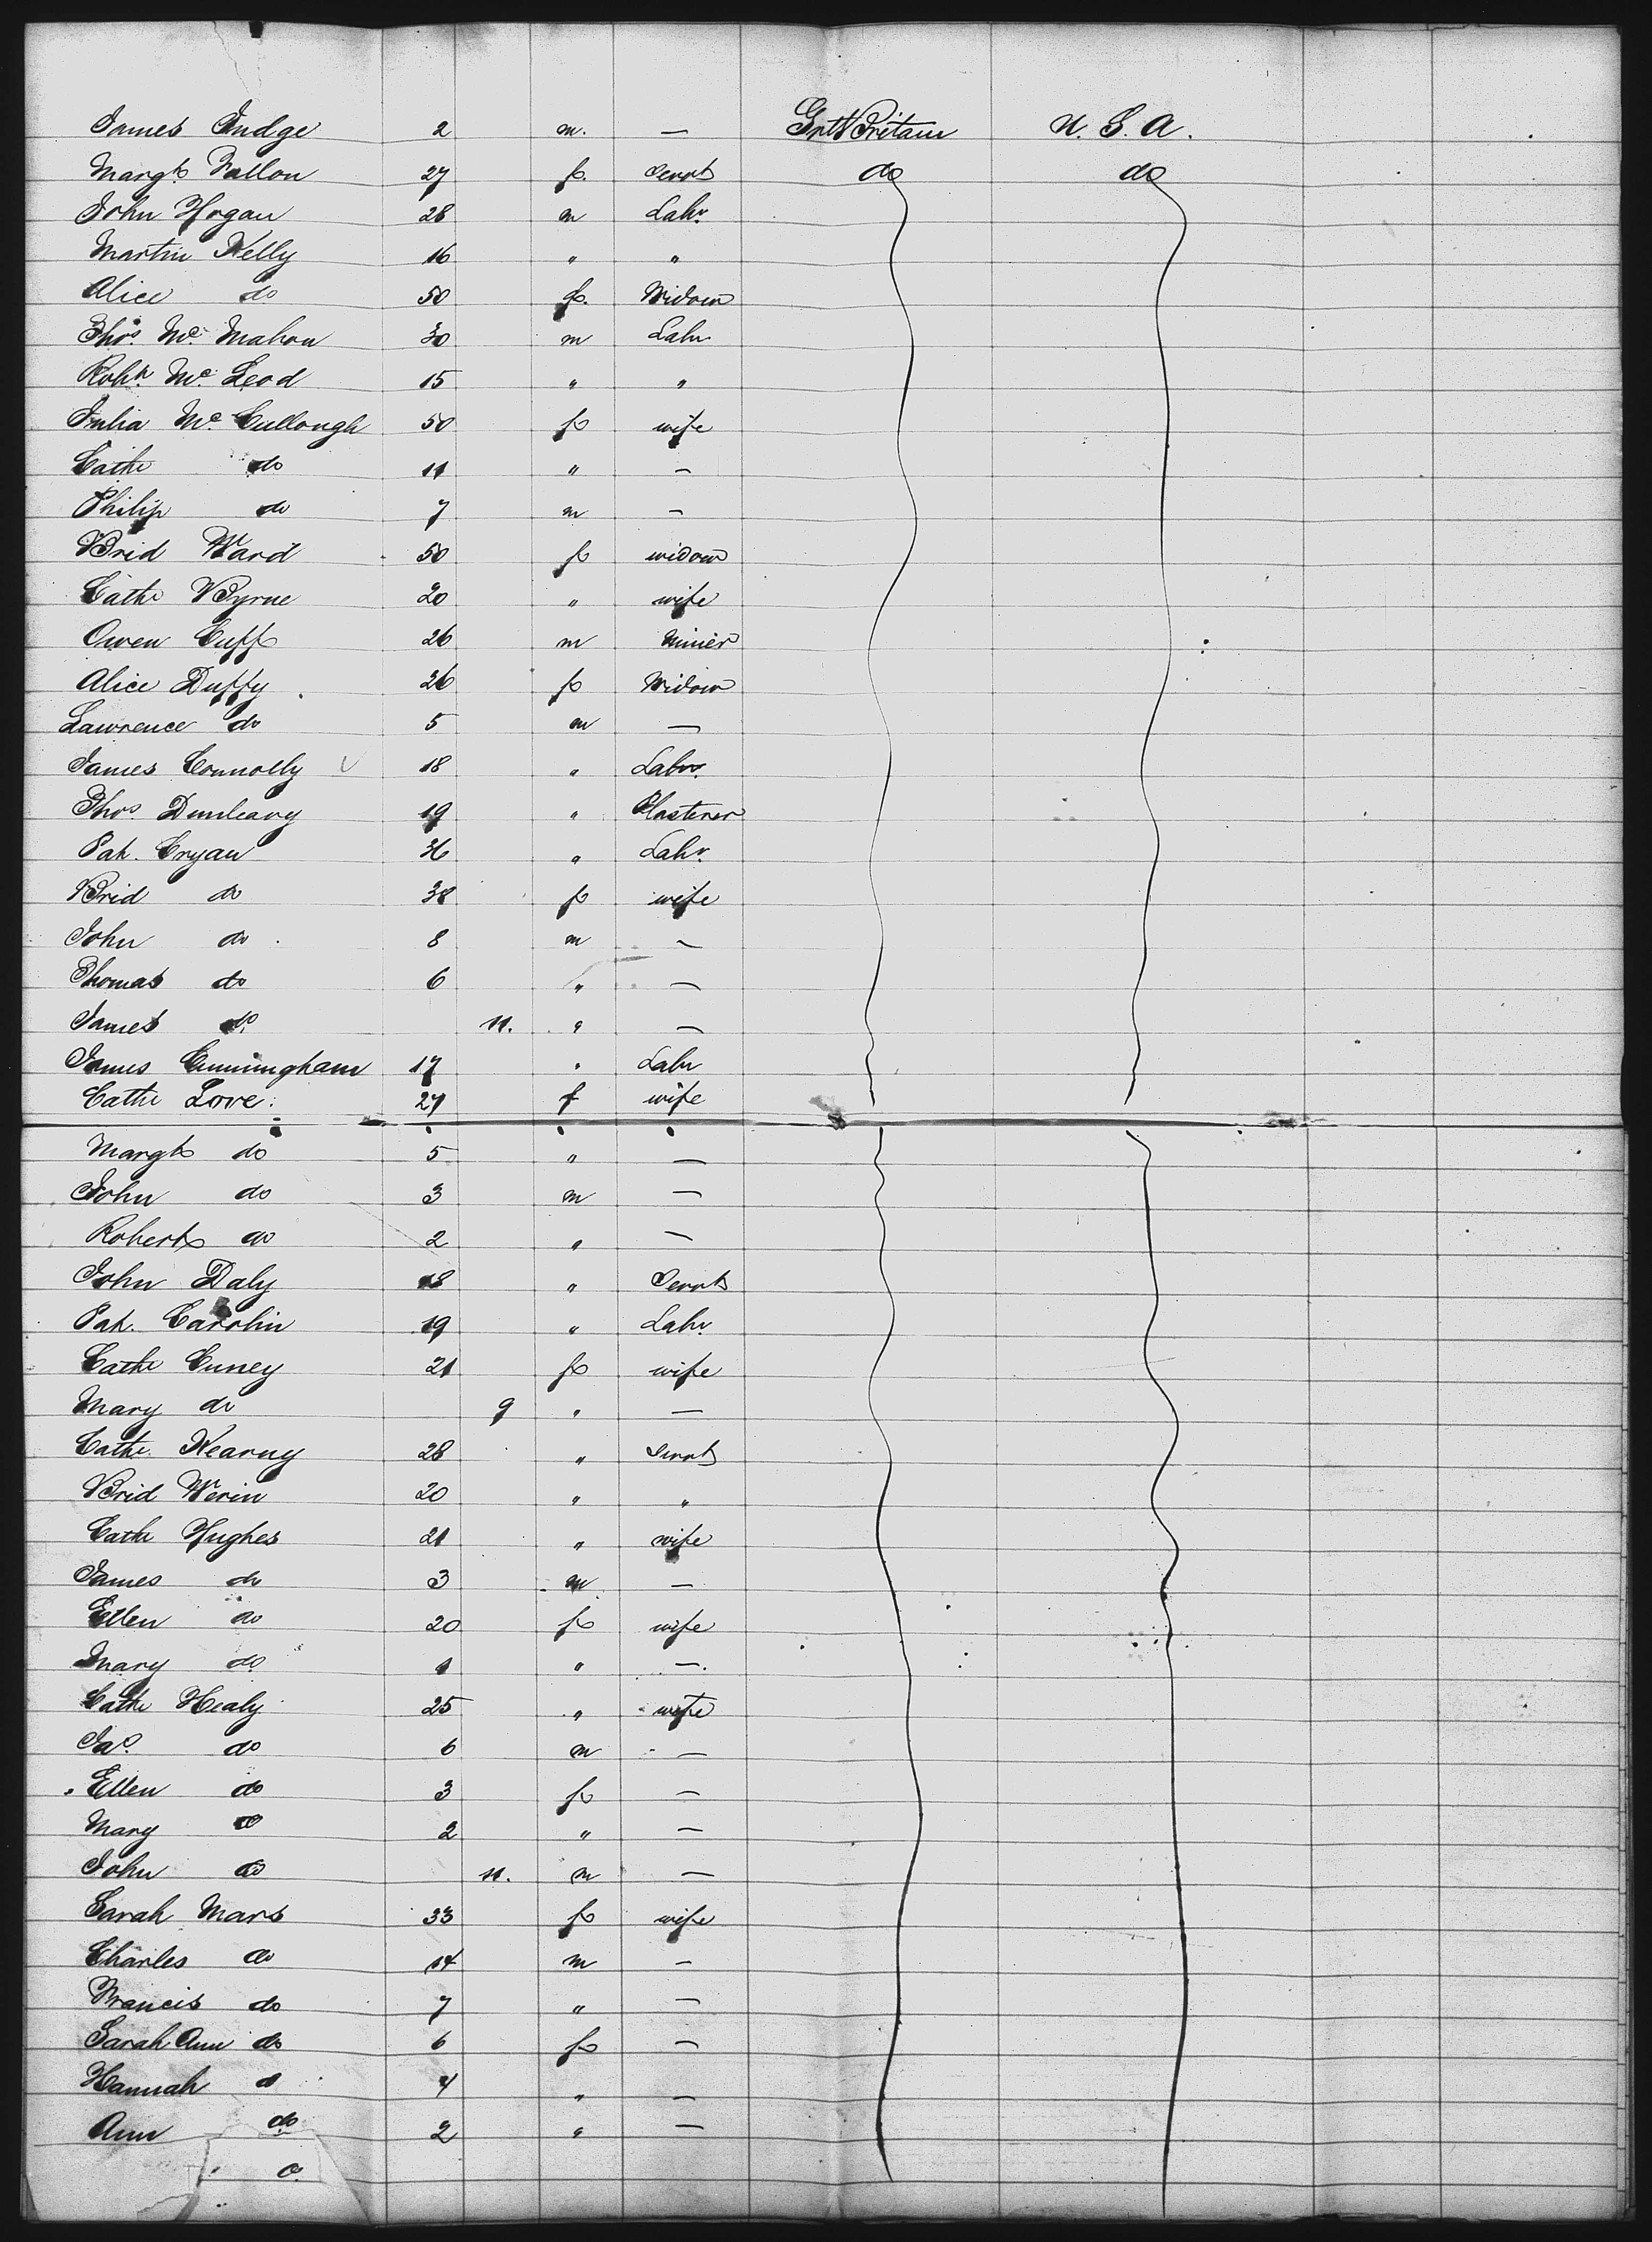 James Judge 2 m. — Grt Britain U. S. A.
Margt. Fallon 27 f. Servt do do
John Hogan 28 m Labr.
Martin Kelly 16 " "
Alice do 50 f. Widow
Thos. Mc. Mahon 30 m Labr
Robt. Mc. Leod 15 " "
Julia Mc. Cullough 50 f wife
Cathe do 11 " —
Philip do 7 m —
Brid Ward 50 f widow
Cathe Byrne 20 " wife
Owen Cuff 26 m Miner
Alice Duffy 26 f Widow
Lawrence do 5 m —
James Connolly 18 " Labr.
Thos Dunleavy 19 " Plasterer
Pat. Cryan 36 " Labr.
Brid do 38 f wife
John do 8 m —
Thomas do 6 " —
James do 11. " —
James Cunningham 17 " Labr
Cathe Love 27 f wife
Margt do 5 " —
John do 3 m —
Robert do 2 " —
John Daly 18 " Servt
Pat. Carolin 19 " Labr.
Cathe Cuney 21 f wife
Mary do 9 " —
Cathe. Kearny 28 " Servt
Brid Werin 20 " "
Cathe Hughes 21 " wife
James do 3 m —
Ellen do 20 f wife
Mary do 1 " —
Cathe Healy 25 " wife
Jas. do 6 m —
Ellen do 3 f —
Mary do 2 " —
John do 11. m —
Sarah Mars 33 f wife
Charles do 14 m —
Francis do 7 " —
Sarah Ann do 6 f —
Hannah do 4 " —
Ann do 2 " —